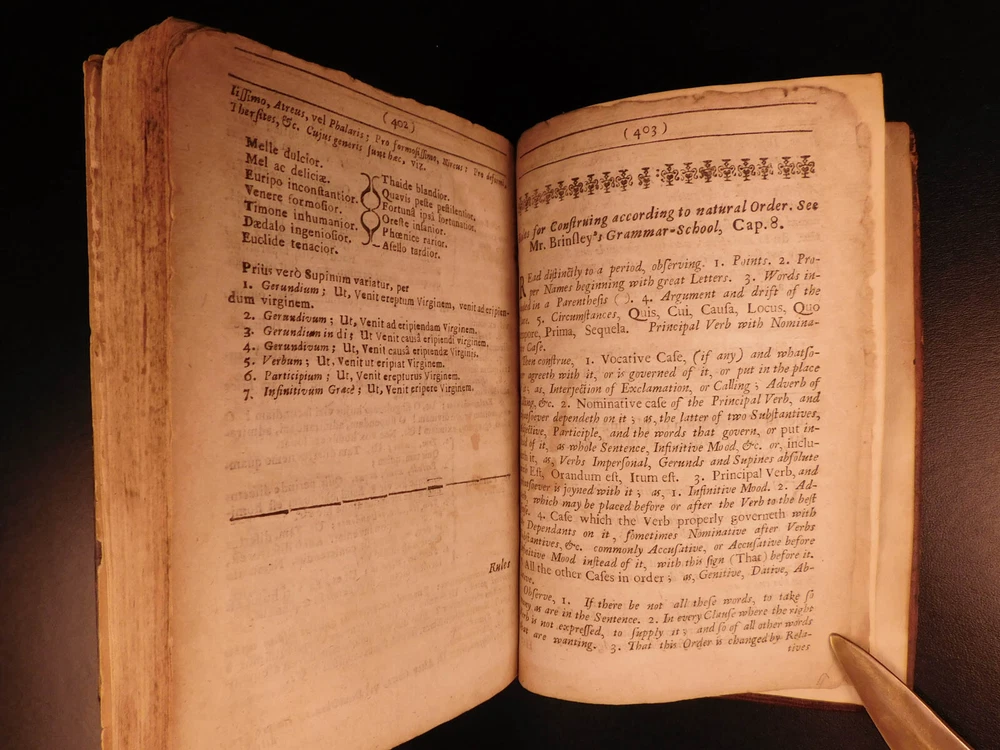 ( 402 )
lissimo, Atreus, vel Phalaris; Pro formosissimo, Nireus; Pro deformi,
Thersites, &c. Cujus generis sunt hæc, viz.
Melle dulcior.
Mel ac deliciæ.
Euripo inconstantior.
Venere formosior.
Timone inhumanior.
Dædalo ingeniosior.
Euclide tenacior.
Thaide blandior.
Quavis peste pestilentior.
Fortunâ ipsâ fortunatior.
Oreste insanior.
Phœnice rarior.
Asello tardior.
Prius verò Supinum variatur, per
1. Gerundium; Ut, Venit ereptum Virginem, venit ad eripien-
dum virginem.
2. Gerundivum; Ut, Venit ad eripiendam Virginem.
3. Gerundium in di; Ut Venit causâ eripiendi virginem.
4. Gerundivum; Ut, Venit causâ eripiendæ Virginis.
5. Verbum; Ut, Venit ut eripiat Virginem.
6. Participium; Ut, Venit erepturus Virginem.
7. Infinitivum Græcè; Ut, Venit eripere Virginem.
Rules
( 403 )
for Construing according to natural Order. See
Mr. Brinsley's Grammar-School, Cap. 8.
REad distinctly to a period, observing. 1. Points. 2. Pro-
per Names beginning with great Letters. 3. Words in-
in a Parenthesis ( ). 4. Argument and drift of the
5. Circumstances, Quis, Cui, Causa, Locus, Quo
Prima, Sequela. Principal Verb with Nomina-
Case.
Then construe. 1. Vocative Case, (if any) and whatso-
agreeth with it, or is governed of it, or put in the place
as, Interjection of Exclamation, or Calling; Adverb of
&c. 2. Nominative case of the Principal Verb, and
dependeth on it; as, the latter of two Substantives,
Participle, and the words that govern, or put in-
of it, as whole Sentence, Infinitive Mood, &c. or, inclu-
it, as, Verbs Impersonal, Gerunds and Supines absolute
Est, Orandum est, Itum est. 3. Principal Verb, and
is joyned with it; as, 1. Infinitive Mood. 2. Ad-
which may be placed before or after the Verb to the best
4. Case which the Verb properly governeth with
Dependants on it, sometimes Nominative after Verbs
&c. commonly Accusative, or Accusative before
Mood instead of it, with this sign (That) before it.
All the other Cases in order; as, Genitive, Dative, Ab-
Observe, 1. If there be not all these words, to take so
as are in the Sentence. 2. In every Clause where the right
is not expressed, to supply it; and so of all other words
are wanting. 3. That this Order is changed by Rela-
tives